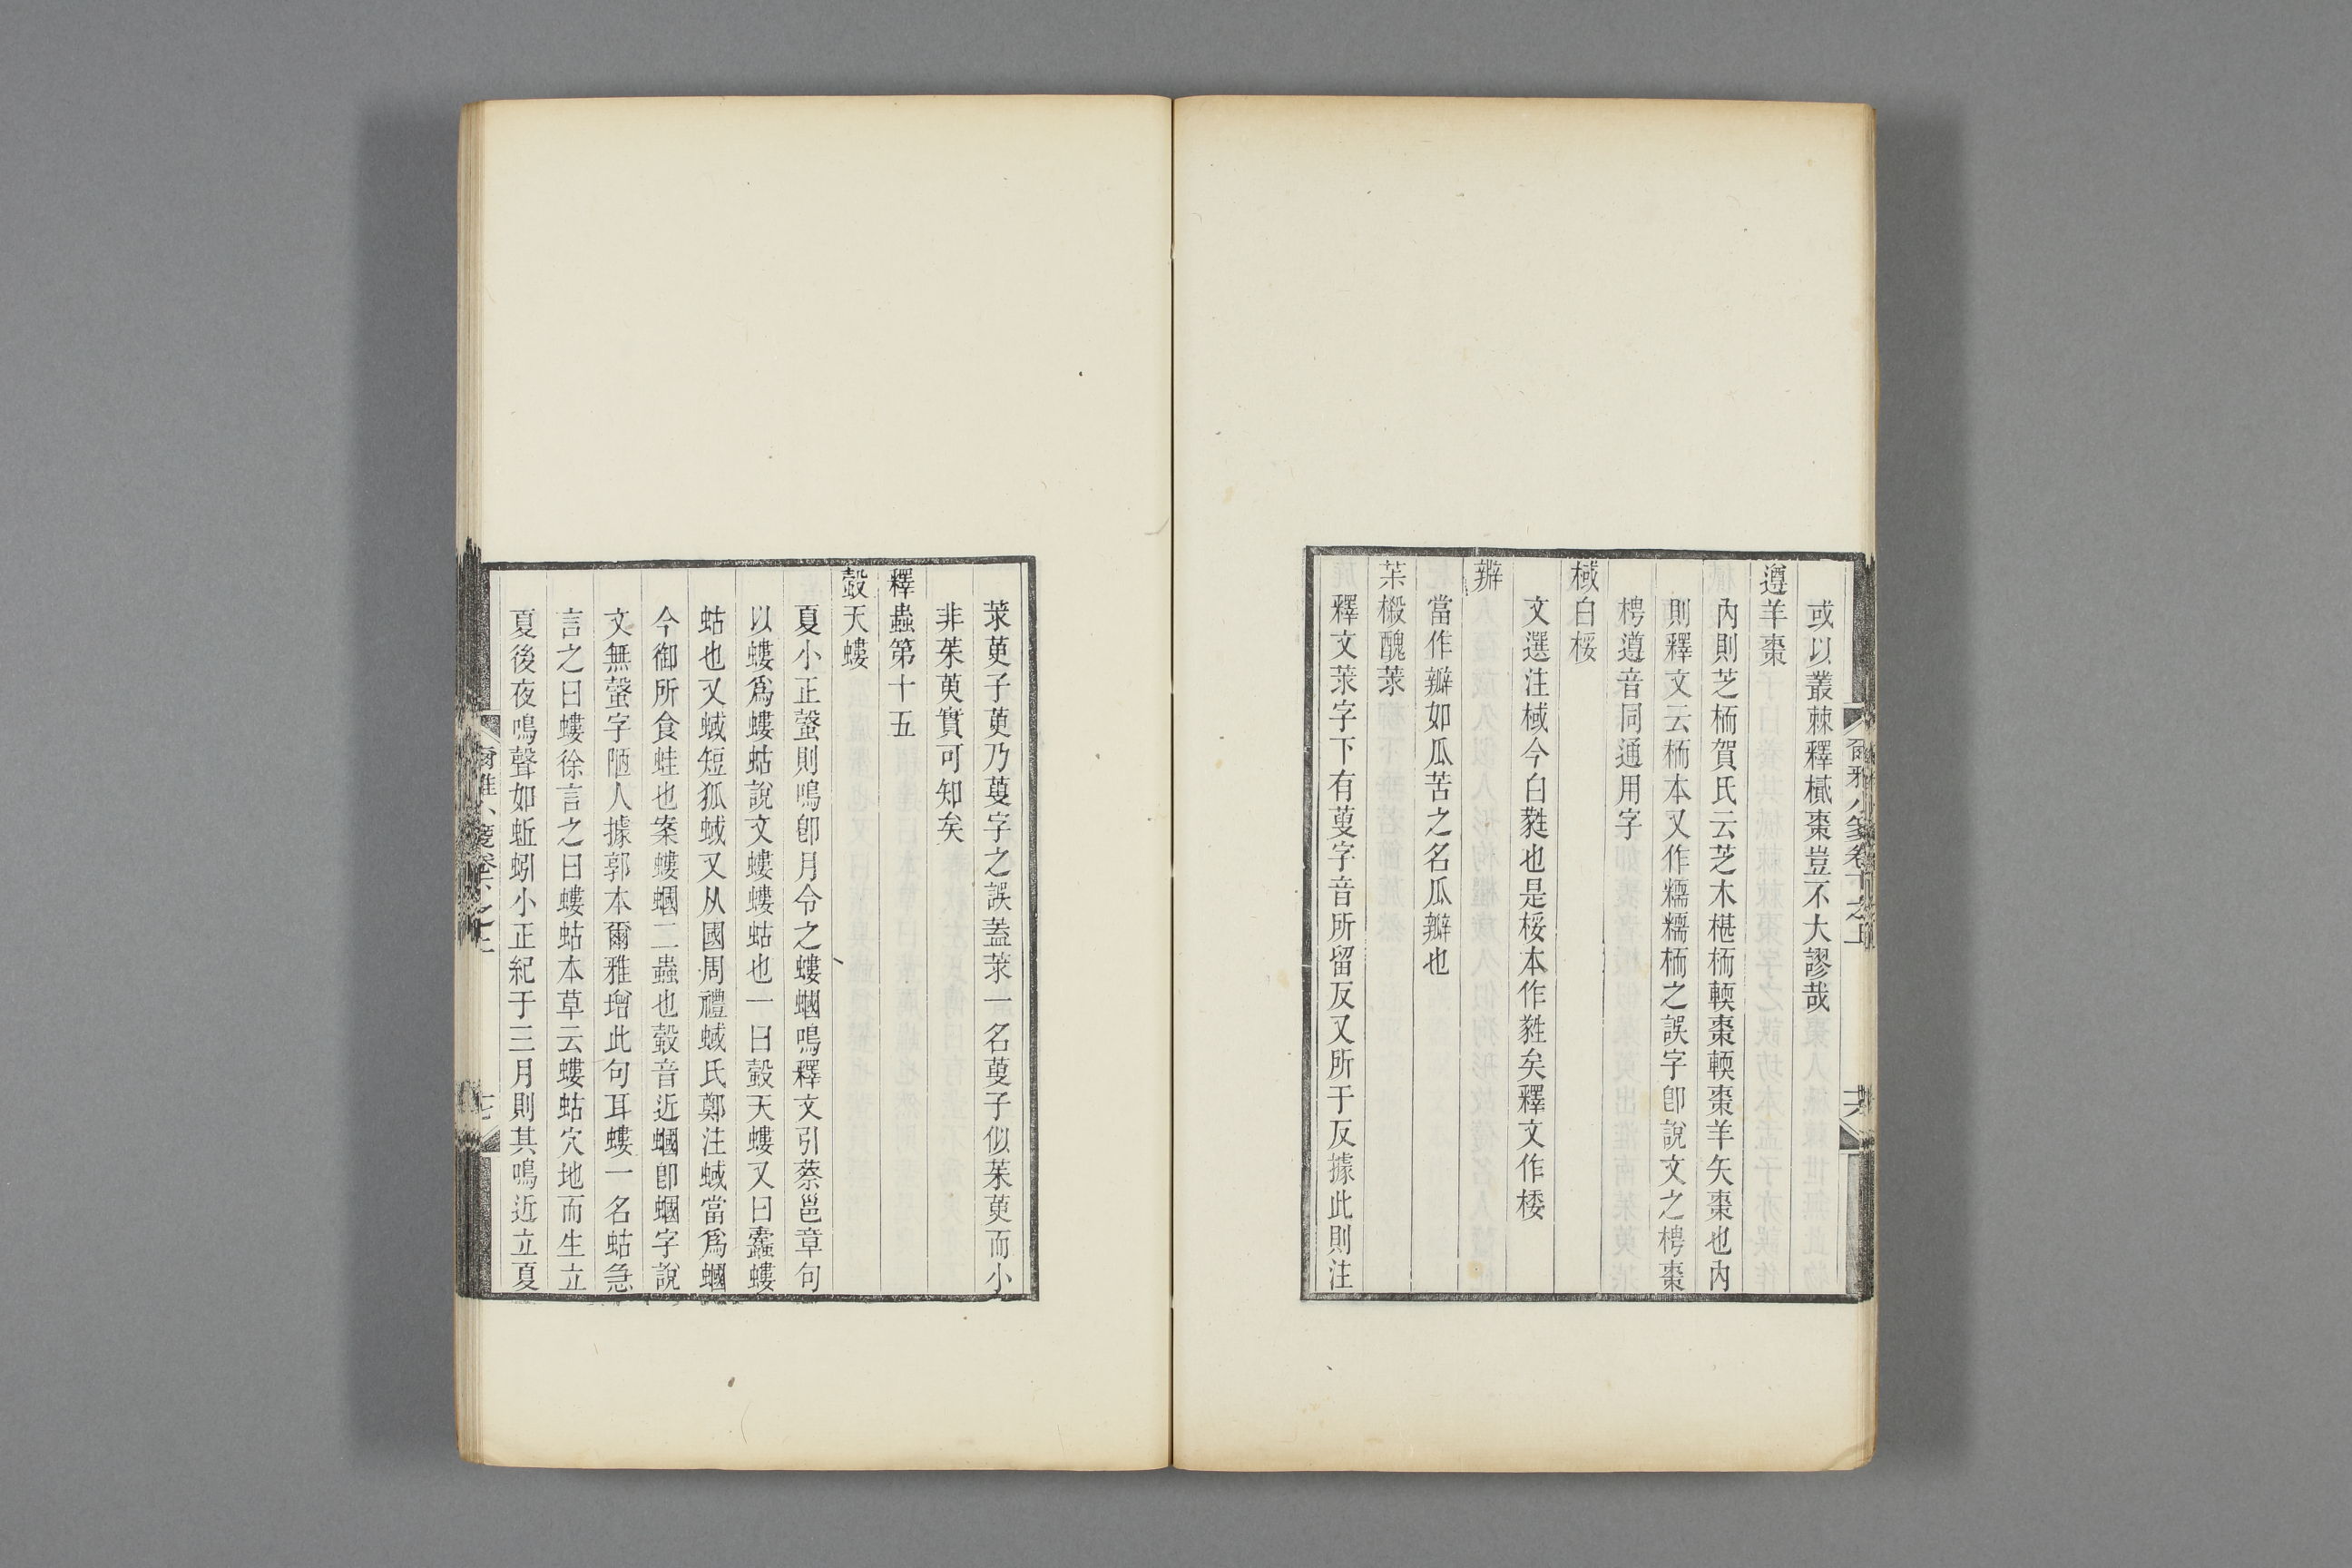 或以叢棘釋樲棗豈不大謬哉
遵羊棗
內則芝栭賀氏云芝木椹栭輭棗輭棗羊矢棗也內
則釋文云栭本又作檽檽栭之誤字卽說文之梬棗
梬遵音同通用字
棫白桵
文選注棫今白蕤也是桵本作蕤矣釋文作桵
辦
當作瓣如瓜苦之名瓜瓣也
茮樧醜莍
釋文莍字下有蔓字音所留反又所于反據此則注
莍萸子萸乃蔓字之誤蓋莍一名蔓子似茱萸而小
非茱萸實可知矣
釋蟲第十五
螜天螻
夏小正螜則鳴卽月令之螻蟈鳴釋文引蔡邕章句
以螻爲螻蛄說文螻螻蛄也一曰螜天螻又曰蠹螻
蛄也又蜮短狐蜮又从國周禮蜮氏鄭注蜮當爲蟈
今御所食蛙也案螻蟈二蟲也螜音近蟈卽蟈字說
文無螜字陋人據郭本爾雅增此句耳螻一名蛄急
言之曰螻徐言之曰螻蛄本草云螻蛄穴地而生立
夏後夜鳴聲如蚯蚓小正紀于三月則其鳴近立夏